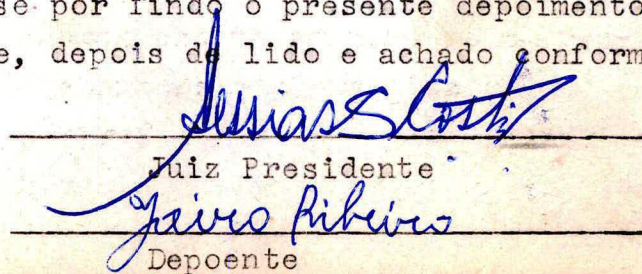 se por findo o presente depoimento
e, depois de lido e achado conform
Messias S Costa
Juiz Presidente
Jairo Ribeiro
Depoente